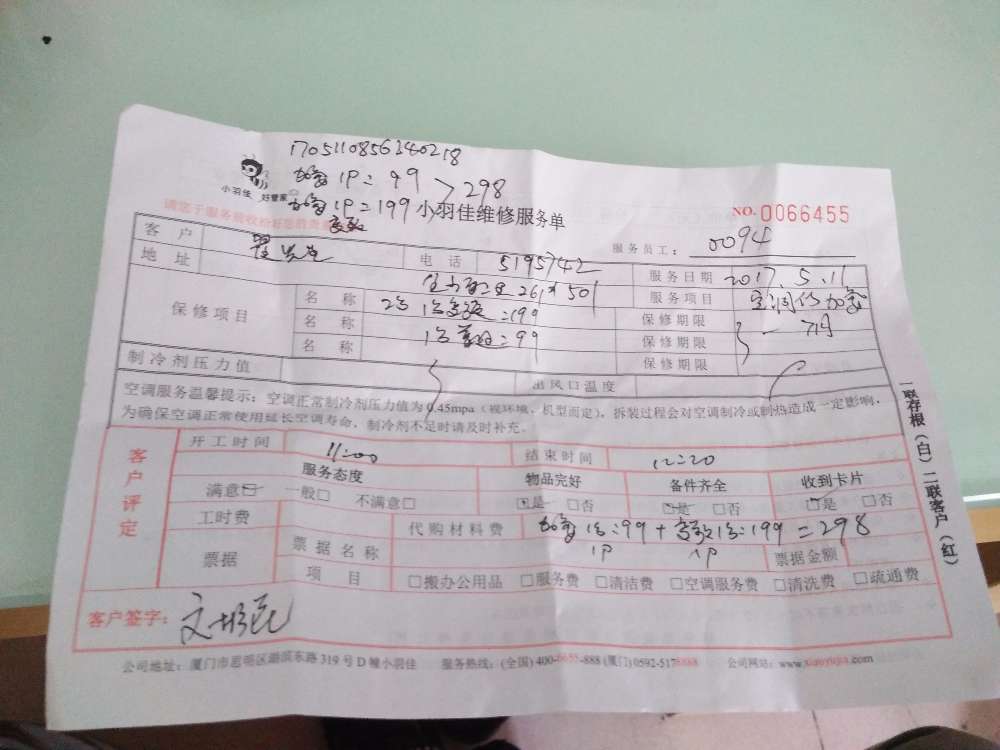 1705110856340218
加氟 1P=99 > 298
小羽佳 好管家
加氟 1P=199
小羽佳维修服务单
NO. 0066455
请您于服务验收后
服务员工: 0094
客户
电话 5195742
服务日期 2017.5.11
地址
服务项目 空调加氟
保修项目
名称
保修期限
名称
保修期限
名称
保修期限
制冷剂压力值
出风口温度
空调服务温馨提示:空调正常制冷剂压力值为0.45mpa(视环境、机型而定),拆装过程会对空调制冷或制热造成一定影响,
为确保空调正常使用延长空调寿命,制冷剂不足时请及时补充。
客户评定
开工时间 11:00
结束时间 12:20
服务态度
物品完好
备件齐全
收到卡片
满意□ 一般□ 不满意□
□是 □否
□是 □否
□是 □否
工时费
代购材料费
=298
1P 1P
票据
票据名称
票据金额
项目
□搬办公用品 □服务费 □清洁费 □空调服务费 □清洗费 □疏通费
客户签字:
公司地址:厦门市思明区湖滨东路319号D幢小羽佳 服务热线:(全国)400-6655-888 (厦门)0592-5176888 公司网站:www.xiaoyujia.com
一联存根(白)二联客户(红)